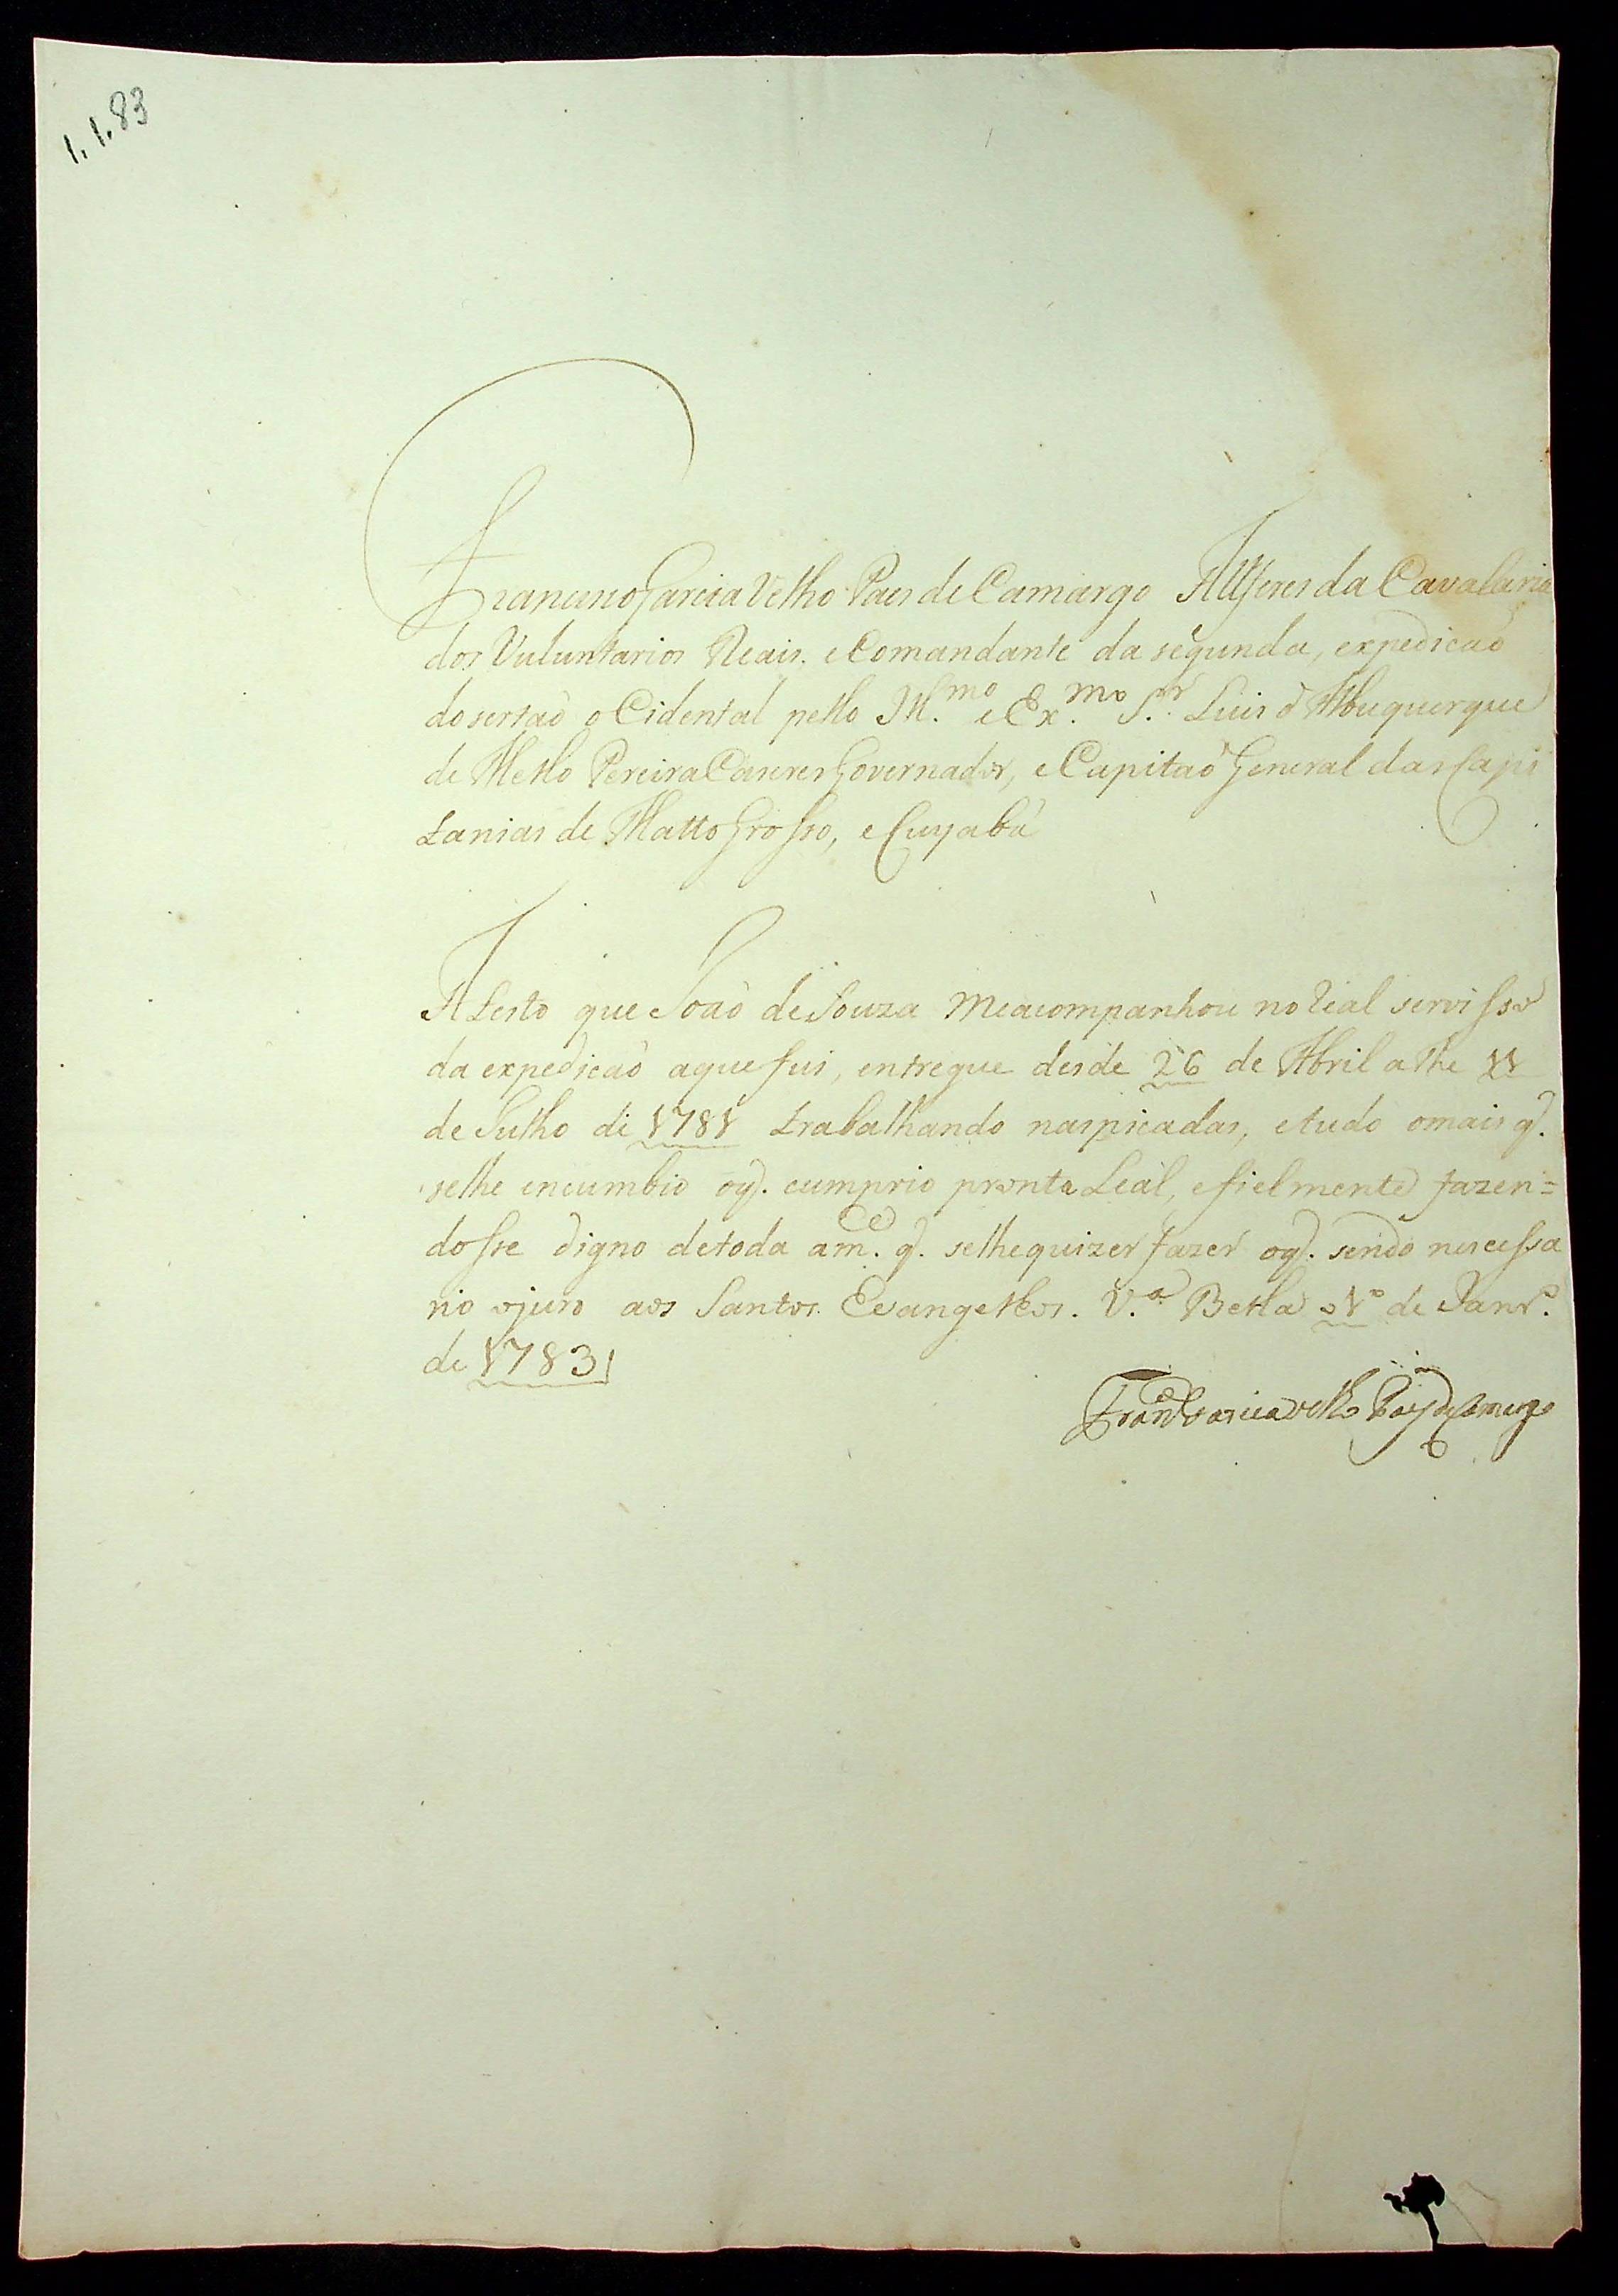 1.1.83
Francisco Garcia Velho Paes de Camargo Alferes da Cavalaria
dos Vuluntarios Reais, e Comandante da segunda, expedicaõ
do sertaõ oCidental pello Ill.mo e Ex.mo S.r Luis d Albuquerque
de Mello Pereira Caseres Governador, e Capitaõ General das Capi
tanias de Matto Grosso, e Cuyabá
Atesto que Joaõ de Souza me acompanhou no Real servisso
da expedicaõ aque fui, entregue desde 26 de Abril athe 11
de Julho de 1781 trabalhando nas picadas, e tudo omais q.
selhe incumbio oq. cumprio pronta Leal, e fielmente fazen=
dosse digno detoda a m.ce q. selhe quizer fazer oq. sendo nescessa
rio ojuro aos Santos Evangelhos. V.a Bella o 1º de Janr.o
de 1783
Fran.co Garcia Velho Paes de Camargo